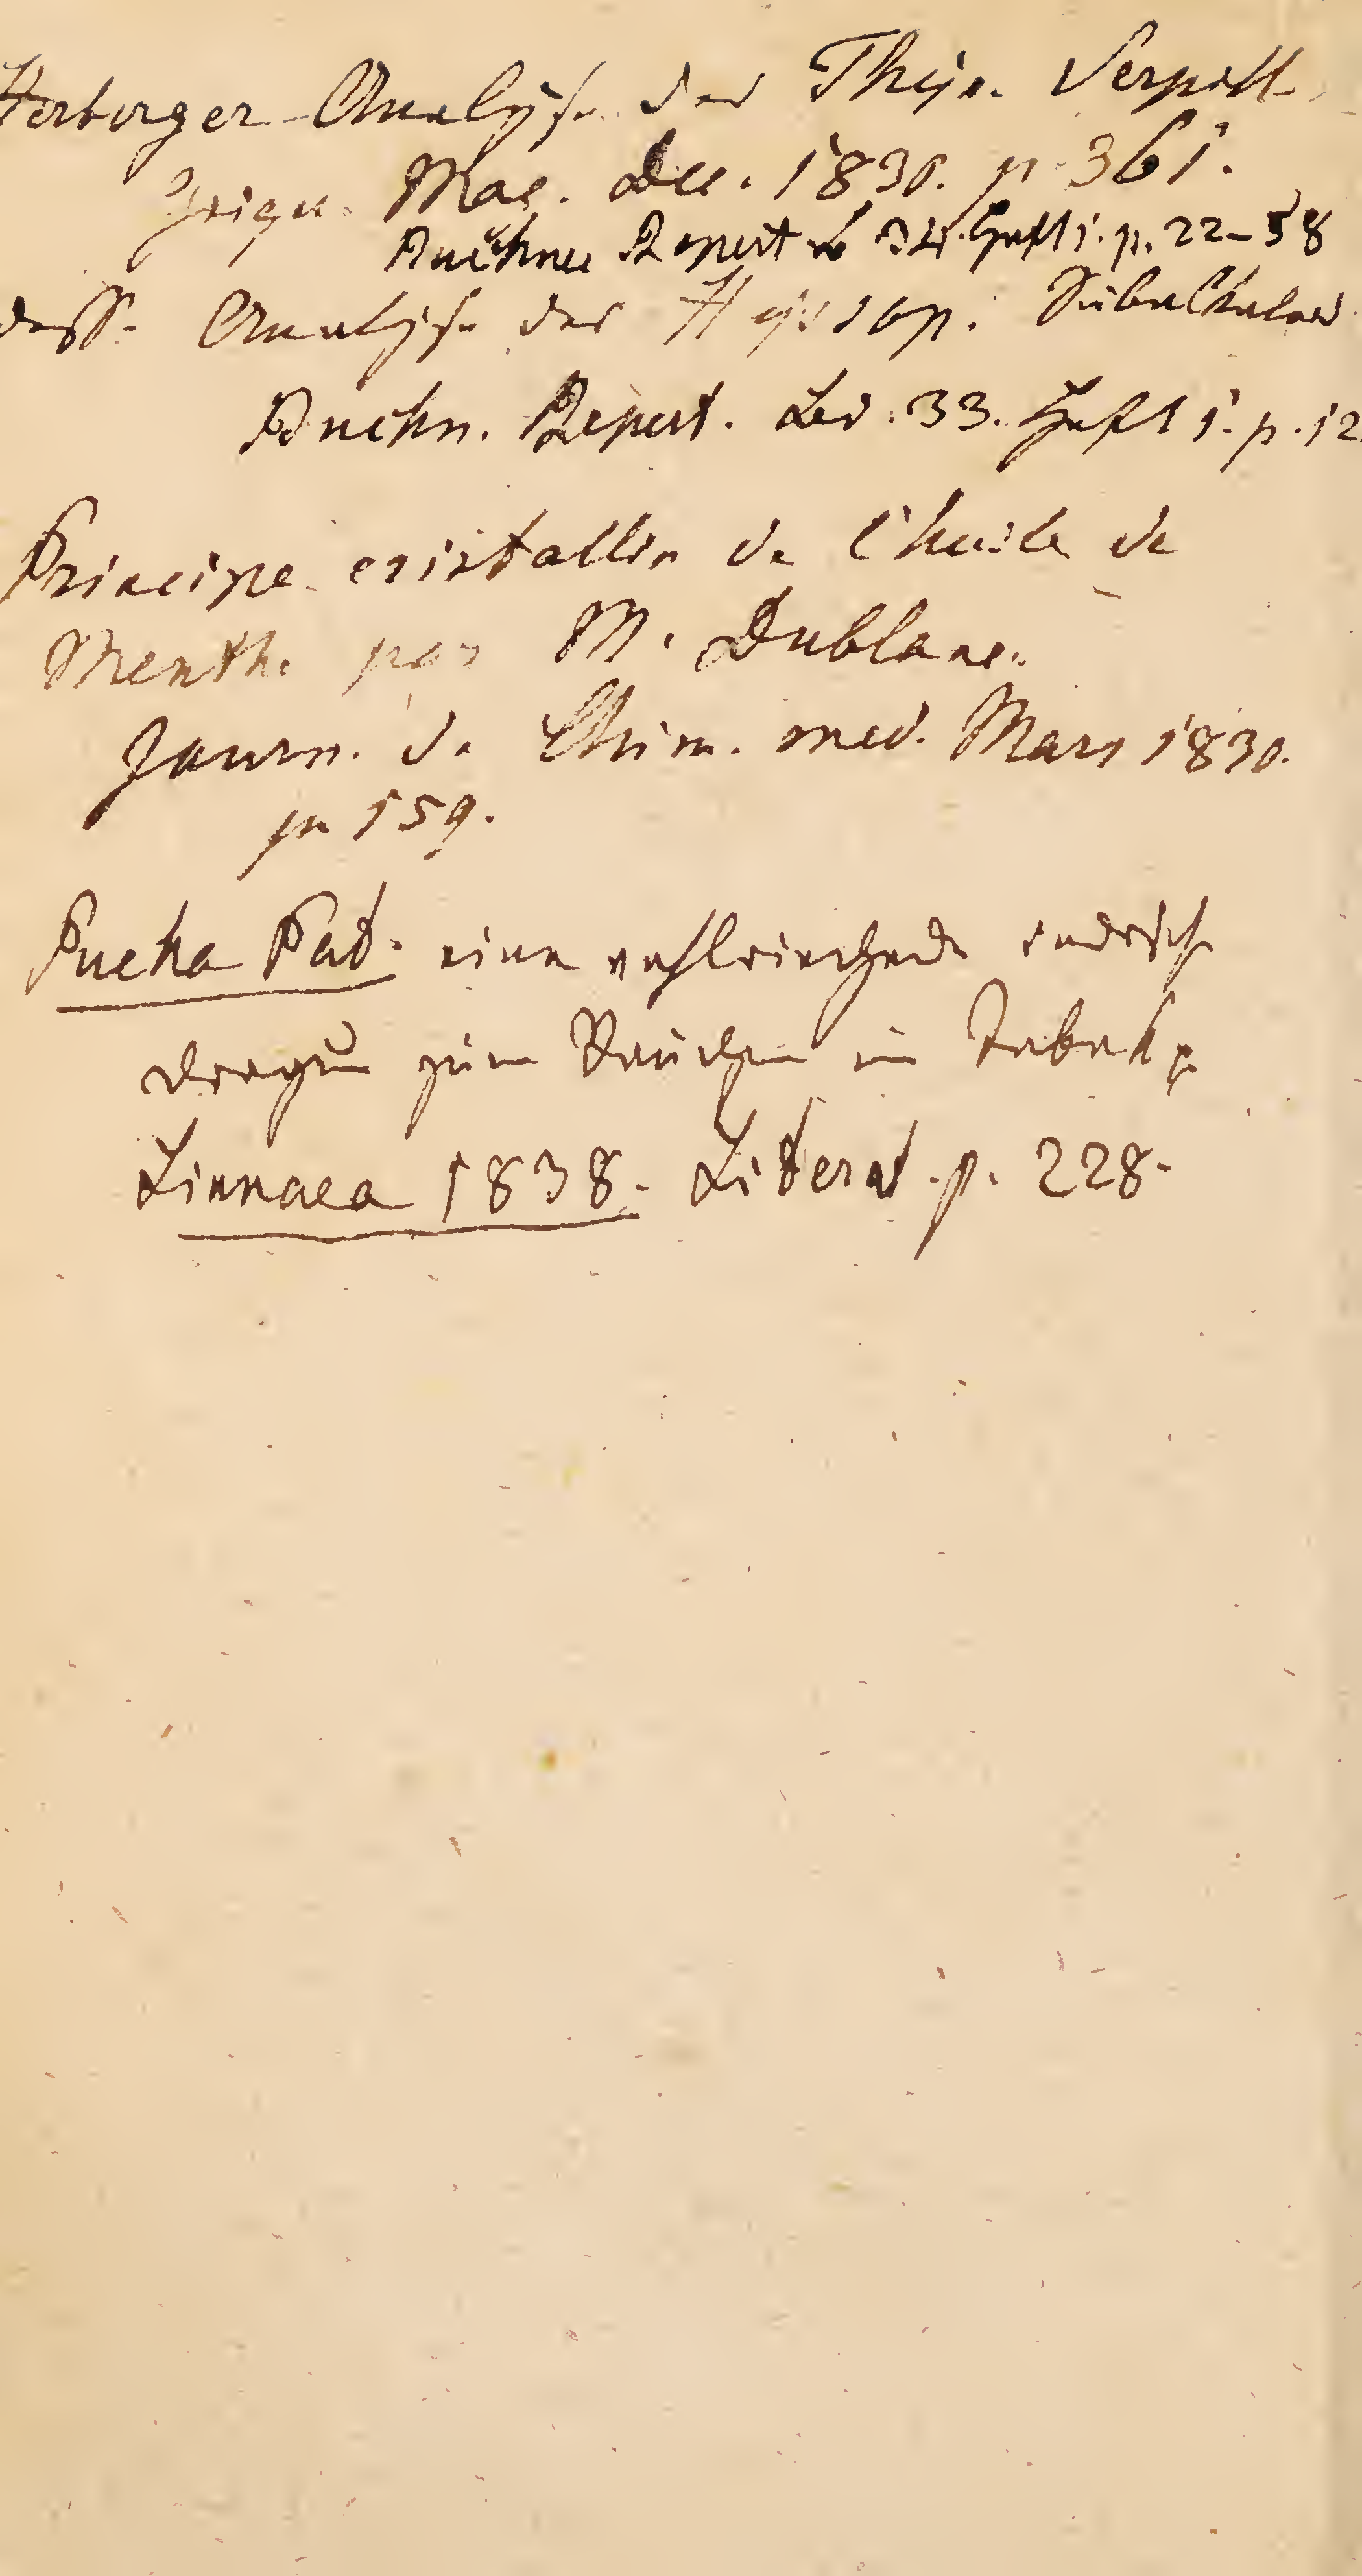 Herberger Analyse des Thym. Serpill.
Geigers Mag. Dec. 1830. p 361.
Buchner Repert 34. Heft 1. p. 22-38
dess. Analyse des Hyssop.
Buchn. Repert. Bd. 33. Heft 1. p. 12
Principe cristallin de l'huile de
Menth. par M. Dublanc.
Journ. de Chim. med. Mars 1830.
p 159.
Pucha Pat. eine wohlriechende indische
Drogue zum Rauchen im Tabak
Linnaea 1838. Literat. p. 228.